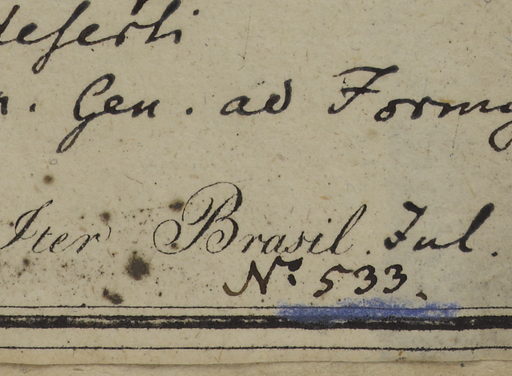 deserti
n. Gen. ad Form
Iter Brasil. Jul.
N.° 533.